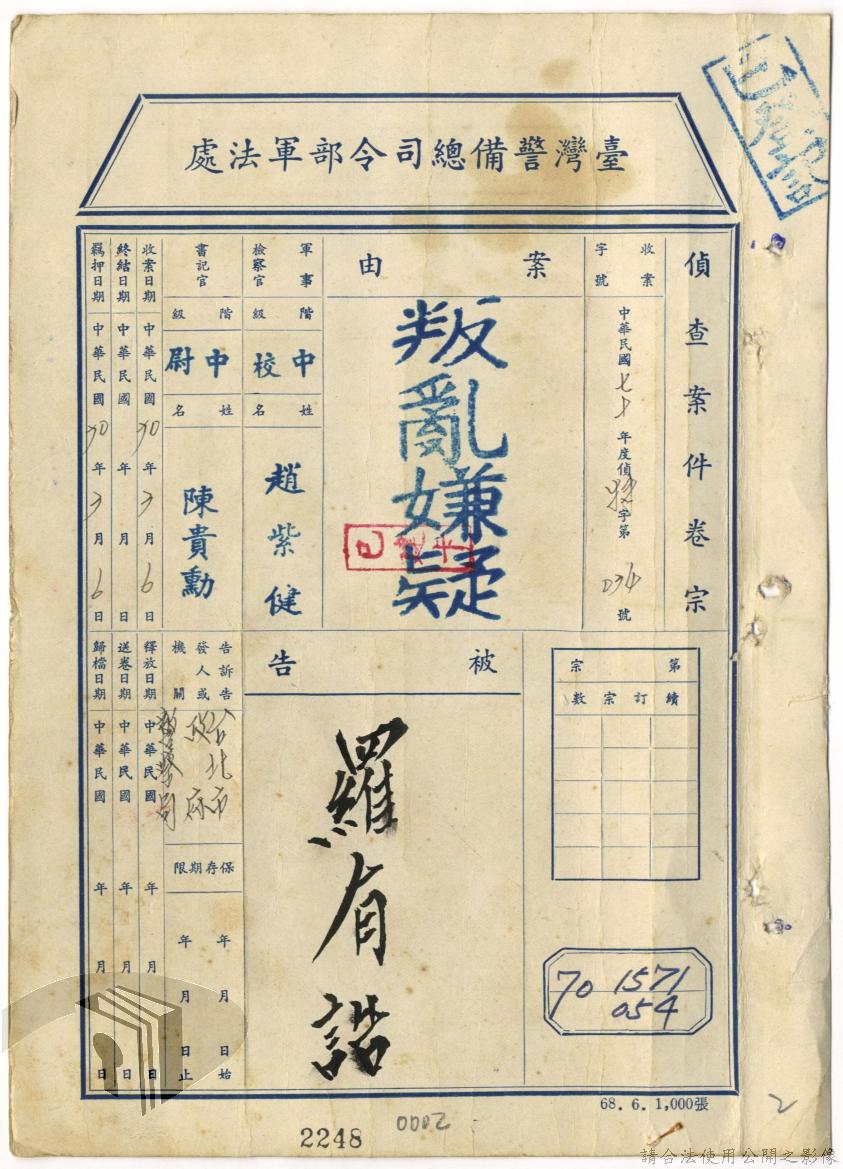 臺灣警備總司令部軍法處
偵查案件卷宗
收案字號
中華民國七十年度偵特字第054號
案由
叛亂嫌疑
軍事檢察官
階級
中校
姓名
趙紫健
書記官
階級
中尉
姓名
陳貴勳
收案日期 中華民國70年3月6日
終結日期 中華民國 年 月 日
羈押日期 中華民國70年3月6日
第 宗
續訂宗數
被告
羅有誥
告訴告發人或機關
台北市政府警察局
保存期限
年 月 日始
年 月 日止
釋放日期 中華民國 年 月 日
送卷日期 中華民國 年 月 日
歸檔日期 中華民國 年 月 日
70 1571
054
68. 6. 1,000張
2
2248
0002
請合法使用公開之影像